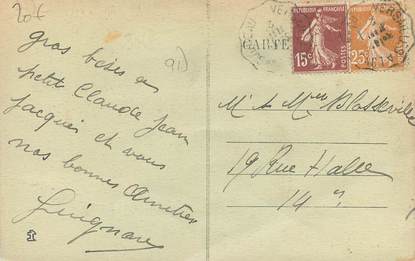 20f
91)
gros bises au
petit Claude Jean
Jacques et vous
nos bonnes Amitiés
Guignard
CARTE
REPUBLIQUE FRANÇAISE
15c
POSTES
REPUBLIQUE FRANÇAISE
25c
Mr & Mme Blasseville
19 Rue Halle
14e